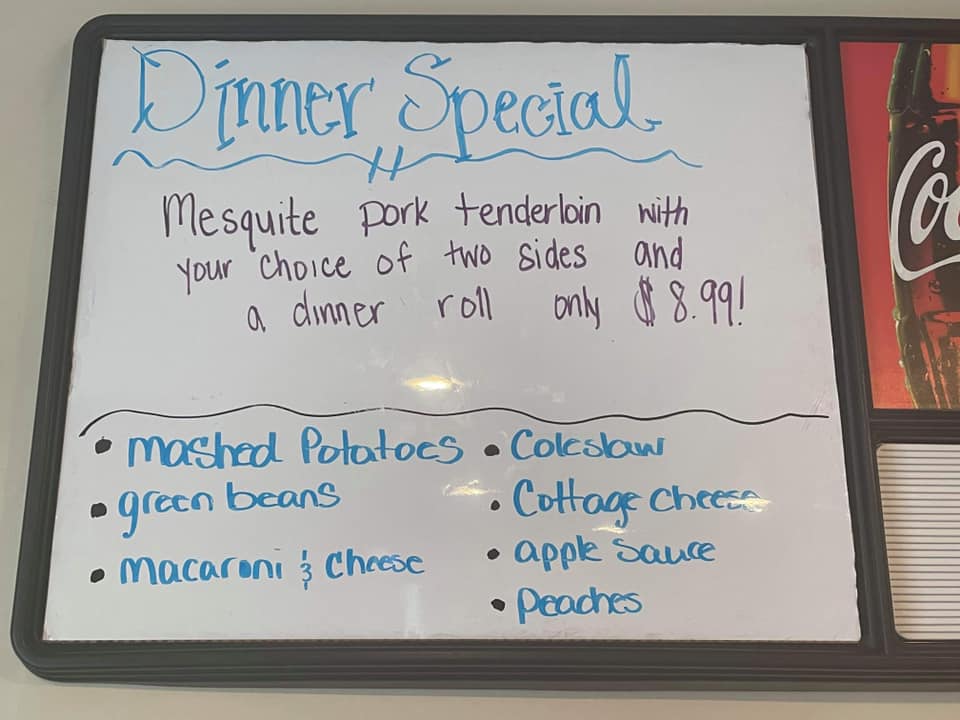 Dinner Special
Mesquite pork tenderloin with
your choice of two sides and
a dinner roll only $8.99!
• mashed Potatoes
• green beans
• macaroni & cheese
• Coleslaw
• Cottage cheese
• apple sauce
• Peaches